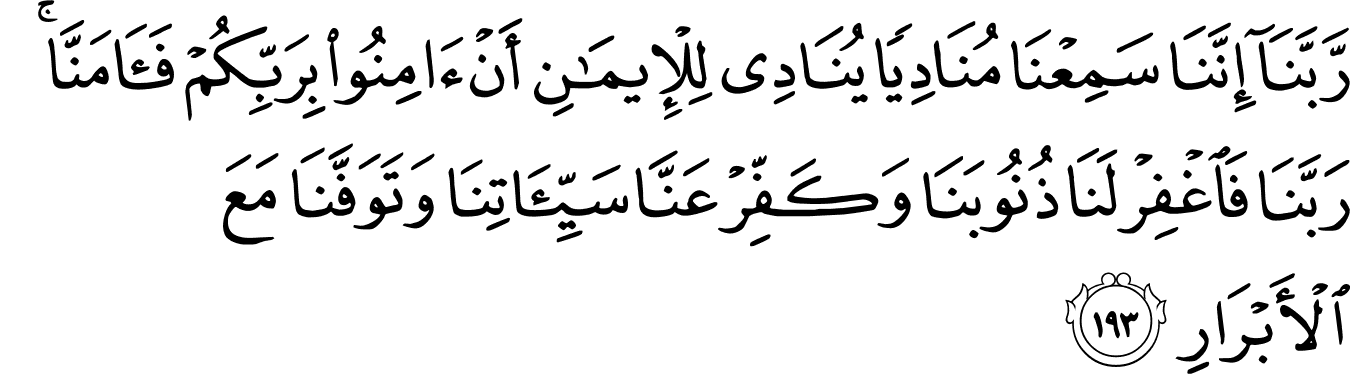 رَّبَّنَآ إِنَّنَا سَمِعْنَا مُنَادِيًا يُنَادِى لِلْإِيمَـٰنِ أَنْ ءَامِنُوا۟ بِرَبِّكُمْ فَـَٔامَنَّا ۚ
رَبَّنَا فَٱغْفِرْ لَنَا ذُنُوبَنَا وَكَفِّرْ عَنَّا سَيِّـَٔاتِنَا وَتَوَفَّنَا مَعَ
ٱلْأَبْرَارِ ١٩٣